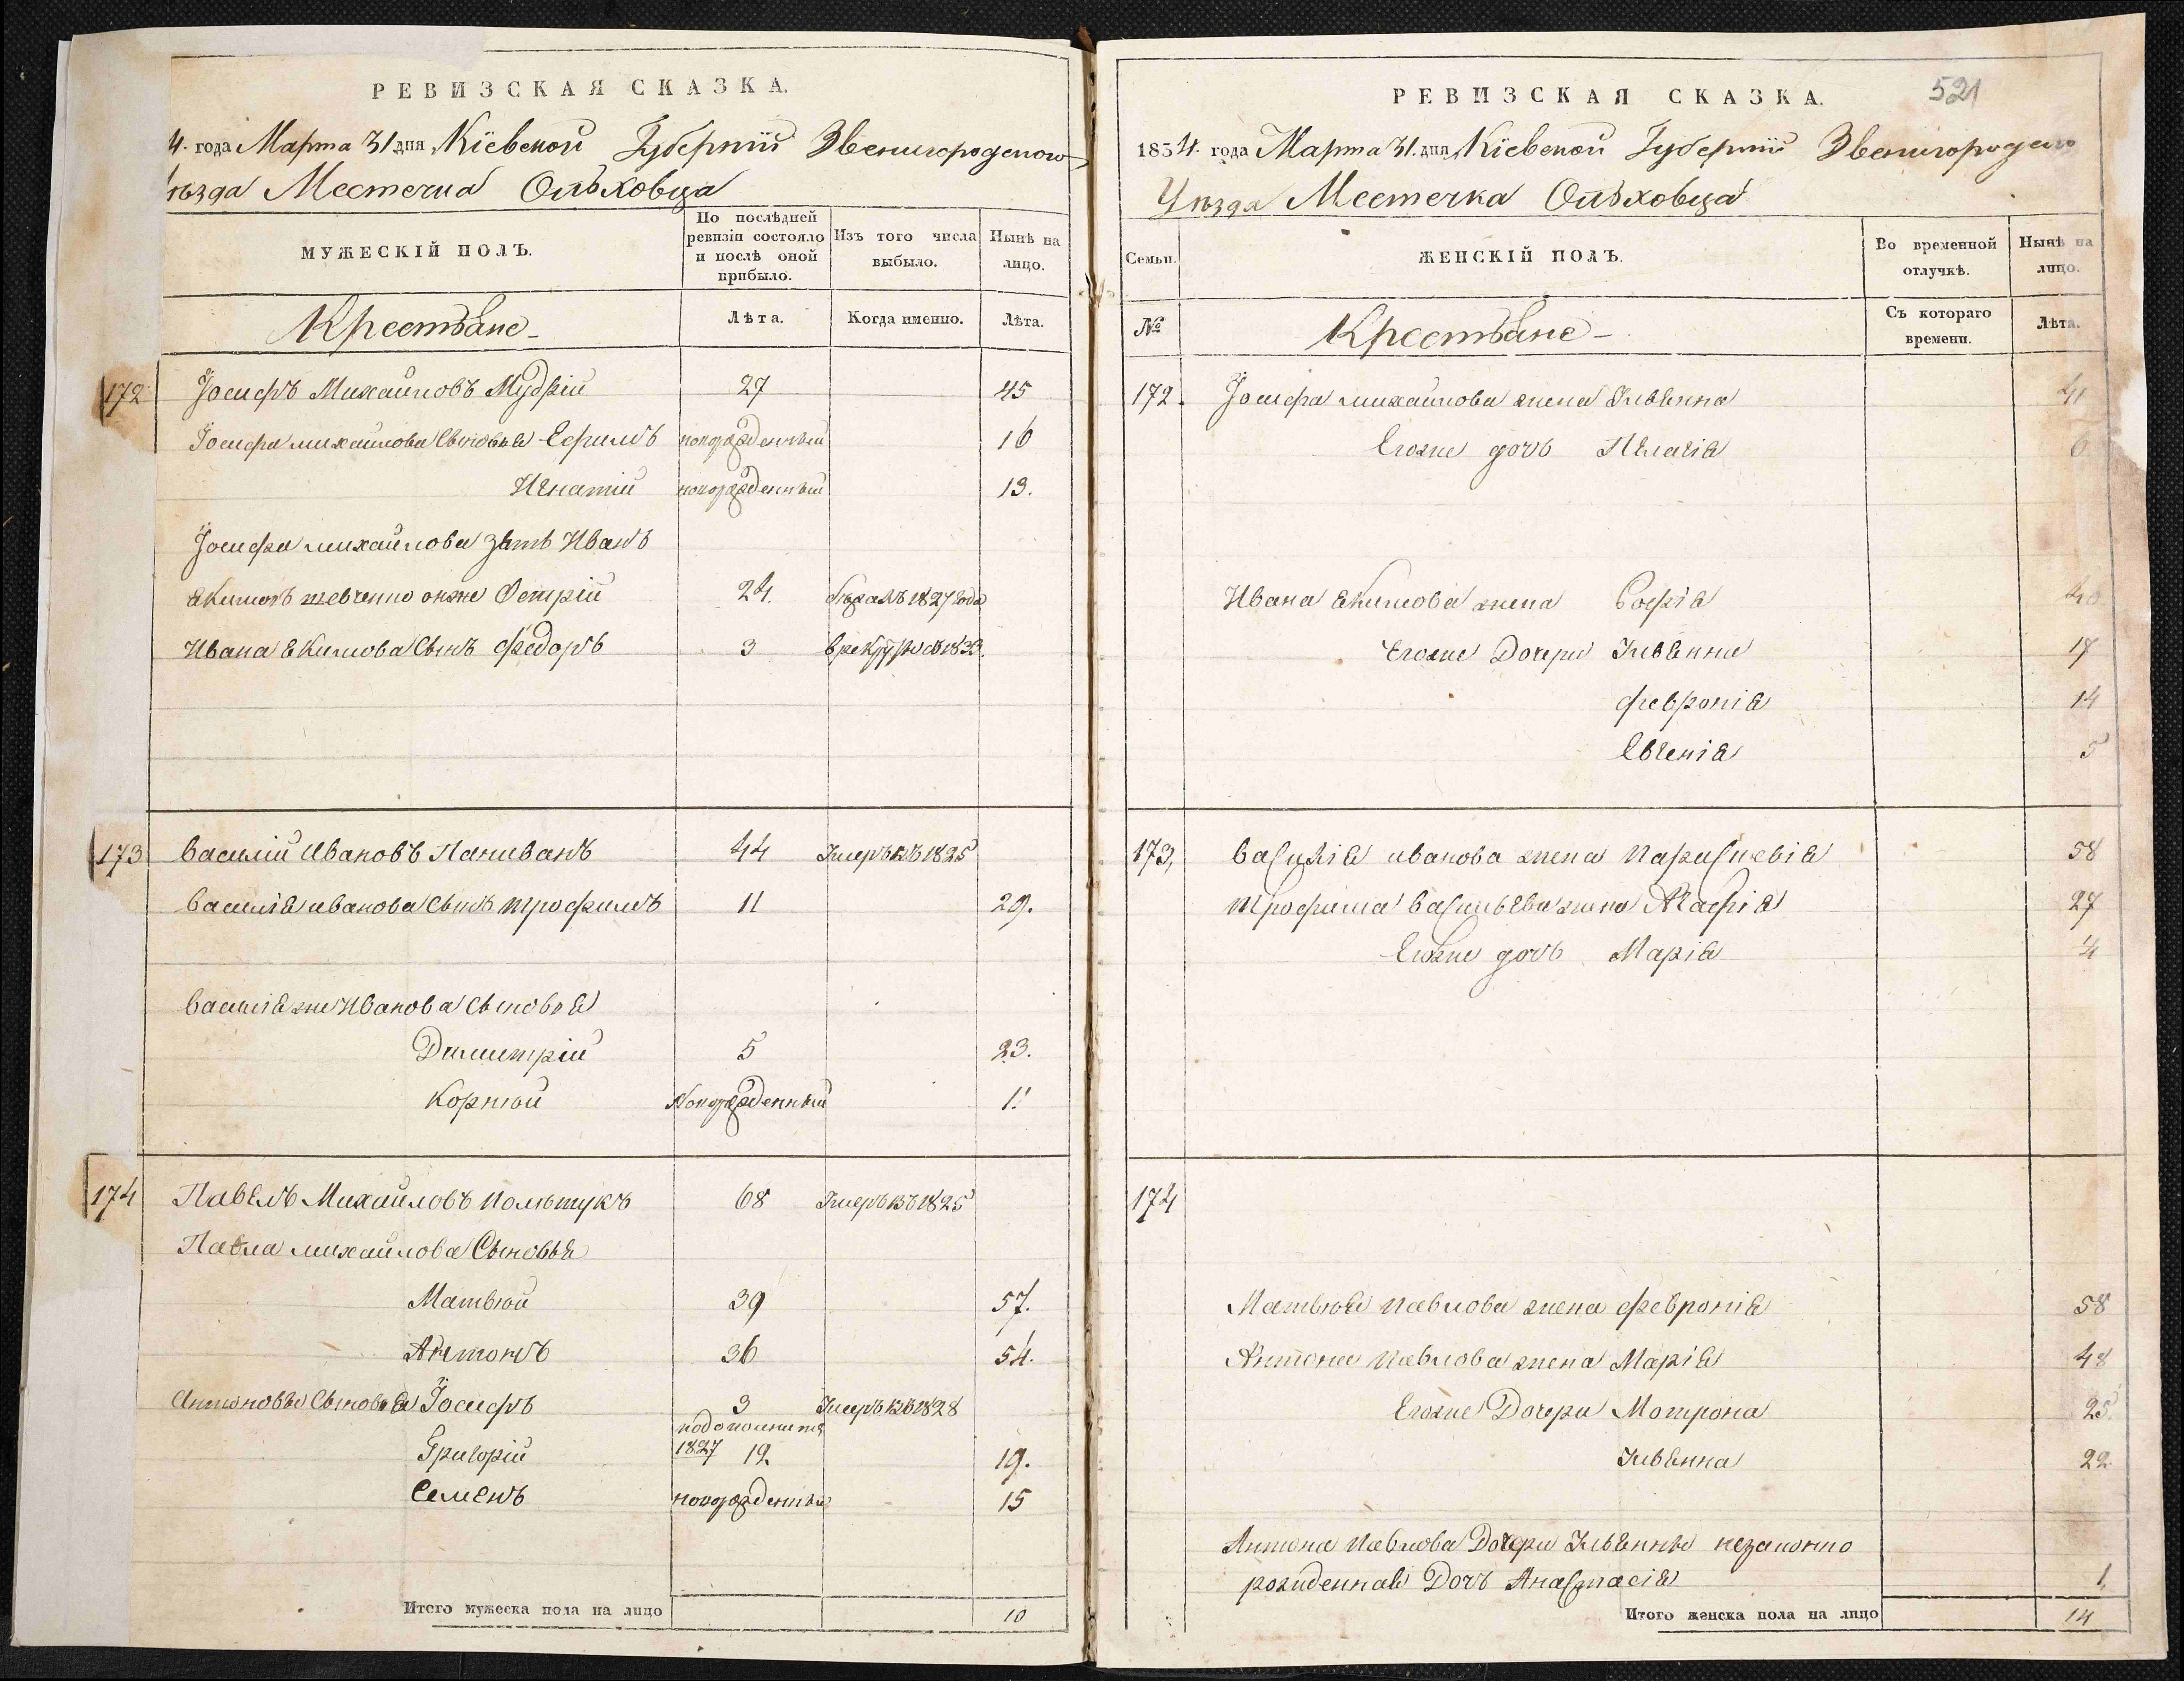 РЕВИЗСКАЯ СКАЗКА.
4. года Марта 31 дня Кіевской Губерніи Звенигородскаго
ѣзда Местечка Ольховца
МУЖЕСКІЙ ПОЛЪ.
По послѣдней ревизіи состояло и послѣ оной прибыло.
Изъ того числа выбыло.
Нынѣ на лицо.
Крестьяне
Лѣта.
Когда именно.
Лѣта.
172 Іосифъ Михайловъ Мудрій 27 45
Іосифа михайлова Сыновья Ефимъ новорожденный 16
Игнатій новорожденный 13.
Іосифа михайлова зять Иванъ
Екимовъ шевченко онже 24. бежалъ 1827 года
Ивана Екимова Сынъ Федоръ 3 врекруты въ 183
173 Василій Ивановъ Паниванъ 44 Умеръ въ 1825
Василія иванова Сынъ трофимъ 11 29.
Василія же Иванова Сыновья
Димитрій 5 23.
Корній Новорожденный 1.
174 Павелъ Михайловъ 68 Умеръ въ 1825
Павла михайлова Сыновья
Матвюй 39 57.
Антонъ 36 54.
Антоновы Сыновья Іосифъ 3 Умеръ въ 1828
1827
Григорій 12 19.
Семенъ новорожденный 15
Итого мужеска пола на лицо 10
521
РЕВИЗСКАЯ СКАЗКА.
1834. года Марта 31. дня Кіевской Губерніи Звенигородскаго
Уѣзда Местечка Ольховца
Семьи.
ЖЕНСКІЙ ПОЛЪ.
Во временной отлучкѣ.
Нынѣ на лицо.
№
Крестьяне
Съ котораго времени.
Лѣта.
172. Іосифа михайлова жена Ульянна 41
Егоже дочь Пелагія 6
Ивана Екимова жена Софія 40
Егоже Дочери Ульянна 17
февронія 14
Евгенія 5
173, Василія иванова жена Параскевія 58
трофима Васильева жена Агафія 27
Егоже дочь Марія 4
174
Матвюя павлова жена февронія 58
Антона павлова жена Марія 48
Егоже Дочери Мотрона 25.
Ульянна 22
Антона павлова Дочери Ульянны незаконно
рожденная Дочь Анастасія 1,
Итого женска пола на лицо 14